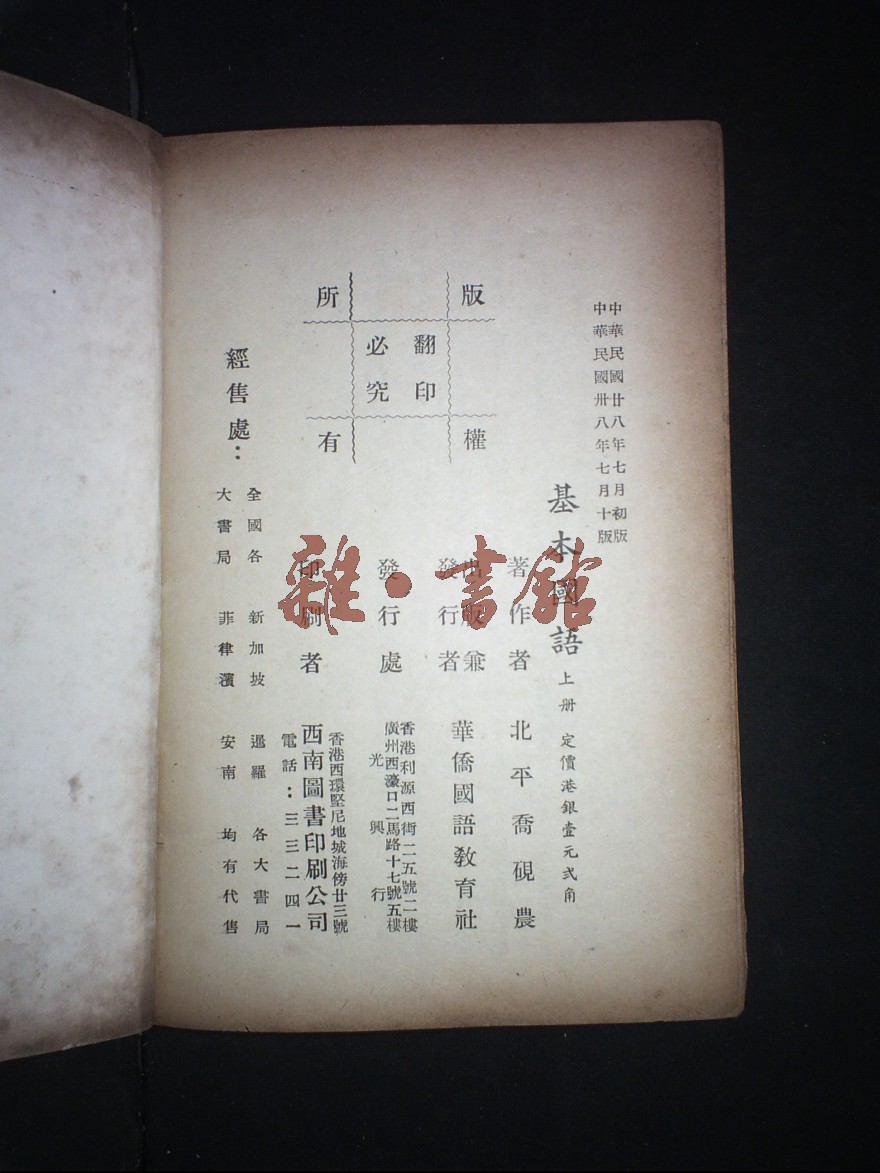 中華民國廿八年七月初版
中華民國卅八年七月十版
基本國語 上册 定價港銀壹元弍角
版權所有
翻印必究
著作者 北平喬硯農
出版兼發行者 華僑國語教育社
發行處 香港利源西街二五號二樓
廣州西濠口二馬路十七號五樓
光興行
印刷者 香港西環堅尼地城海傍廿三號
西南圖書印刷公司
電話：三三二四一
經售處：
全國各大書局
新加坡 暹羅 各大書局
菲律濱 安南 均有代售
雜·書館